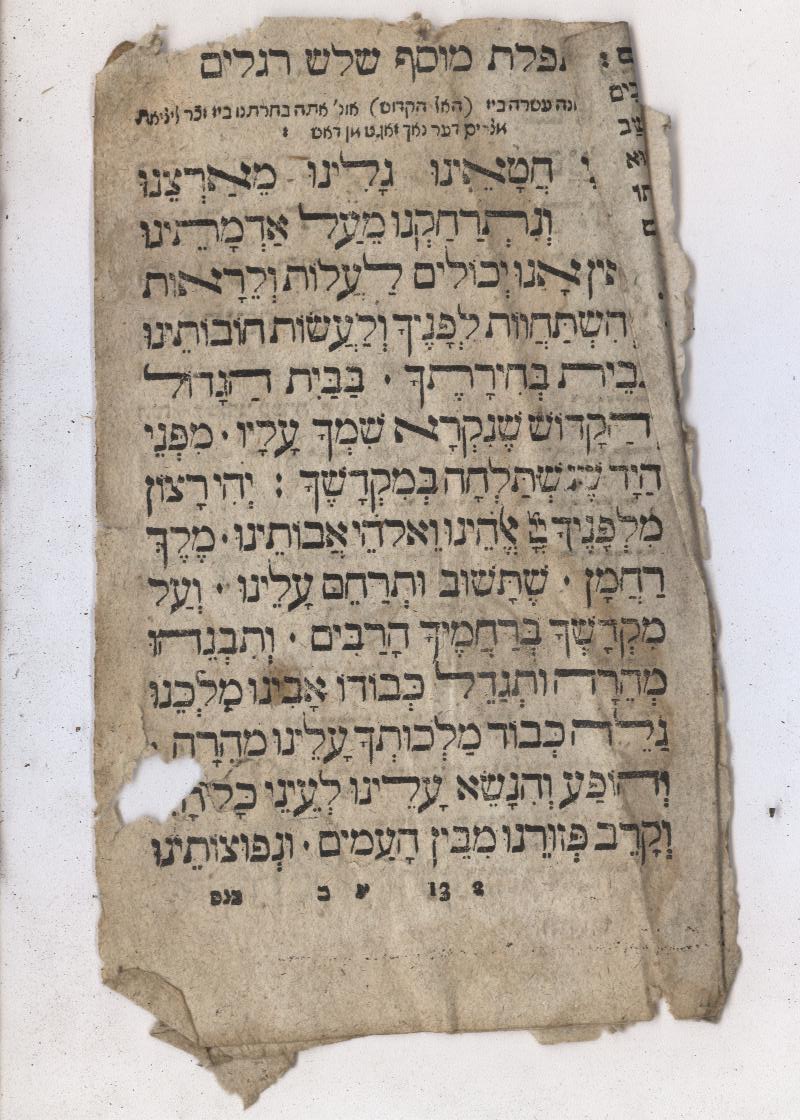 תפלת מוסף שלש רגלים
(האל הקדוש) אונ' אתה בחרתנו ביז זכר ליציאת
מצרים דער נאך זאגט מן דאש :
חֲטָאֵינוּ גָלִינוּ מֵאַרְצֵנוּ
וְנִתְרַחַקְנוּ מֵעַל אַדְמָתֵינוּ
אֵין אָנוּ יְכוֹלִים לַעֲלוֹת וְלֵרָאוֹת
וּלְהִשְׁתַּחֲווֹת לְפָנֶיךָ וְלַעֲשׂוֹת חוֹבוֹתֵינוּ
בְּבֵית בְּחִירָתֶךָ · בַּבַּיִת הַגָּדוֹל
וְהַקָּדוֹשׁ שֶׁנִּקְרָא שִׁמְךָ עָלָיו · מִפְּנֵי
הַיָּד שֶׁנִּשְׁתַּלְּחָה בְּמִקְדָּשֶׁךָ : יְהִי רָצוֹן
מִלְּפָנֶיךָ יְיָ אֱלֹהֵינוּ וֵאלֹהֵי אֲבוֹתֵינוּ · מֶלֶךְ
רַחֲמָן · שֶׁתָּשׁוּב וּתְרַחֵם עָלֵינוּ · וְעַל
מִקְדָּשְׁךָ בְּרַחֲמֶיךָ הָרַבִּים · וְתִבְנֵהוּ
מְהֵרָה וּתְגַדֵּל כְּבוֹדוֹ אָבִינוּ מַלְכֵּנוּ
גַּלֵּה כְּבוֹד מַלְכוּתְךָ עָלֵינוּ מְהֵרָה ·
וְהוֹפַע וְהִנָּשֵׂא עָלֵינוּ לְעֵינֵי כָּל חָי
וְקָרֵב פְּזוּרֵנוּ מִבֵּין הָעַמִּים · וּנְפוּצוֹתֵינוּ
13 ע ב כנס